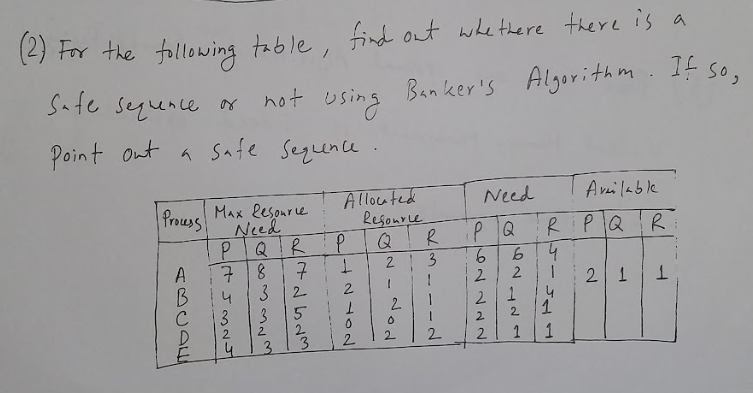 (2) For the following table, find out whethere there is a
Safe sequence or not using Banker's Algorithm. If so,
Point out a Safe Sequence.
Process Max Resource Need Allocated Resource Need Available
P Q R P Q R P Q R P Q R
A 7 8 7 1 2 3 6 6 4 2 1 1
B 4 3 2 2 1 1 2 2 1
C 3 3 5 1 2 1 2 1 4
D 2 2 2 0 0 1 2 2 1
E 4 3 3 2 2 2 2 1 1